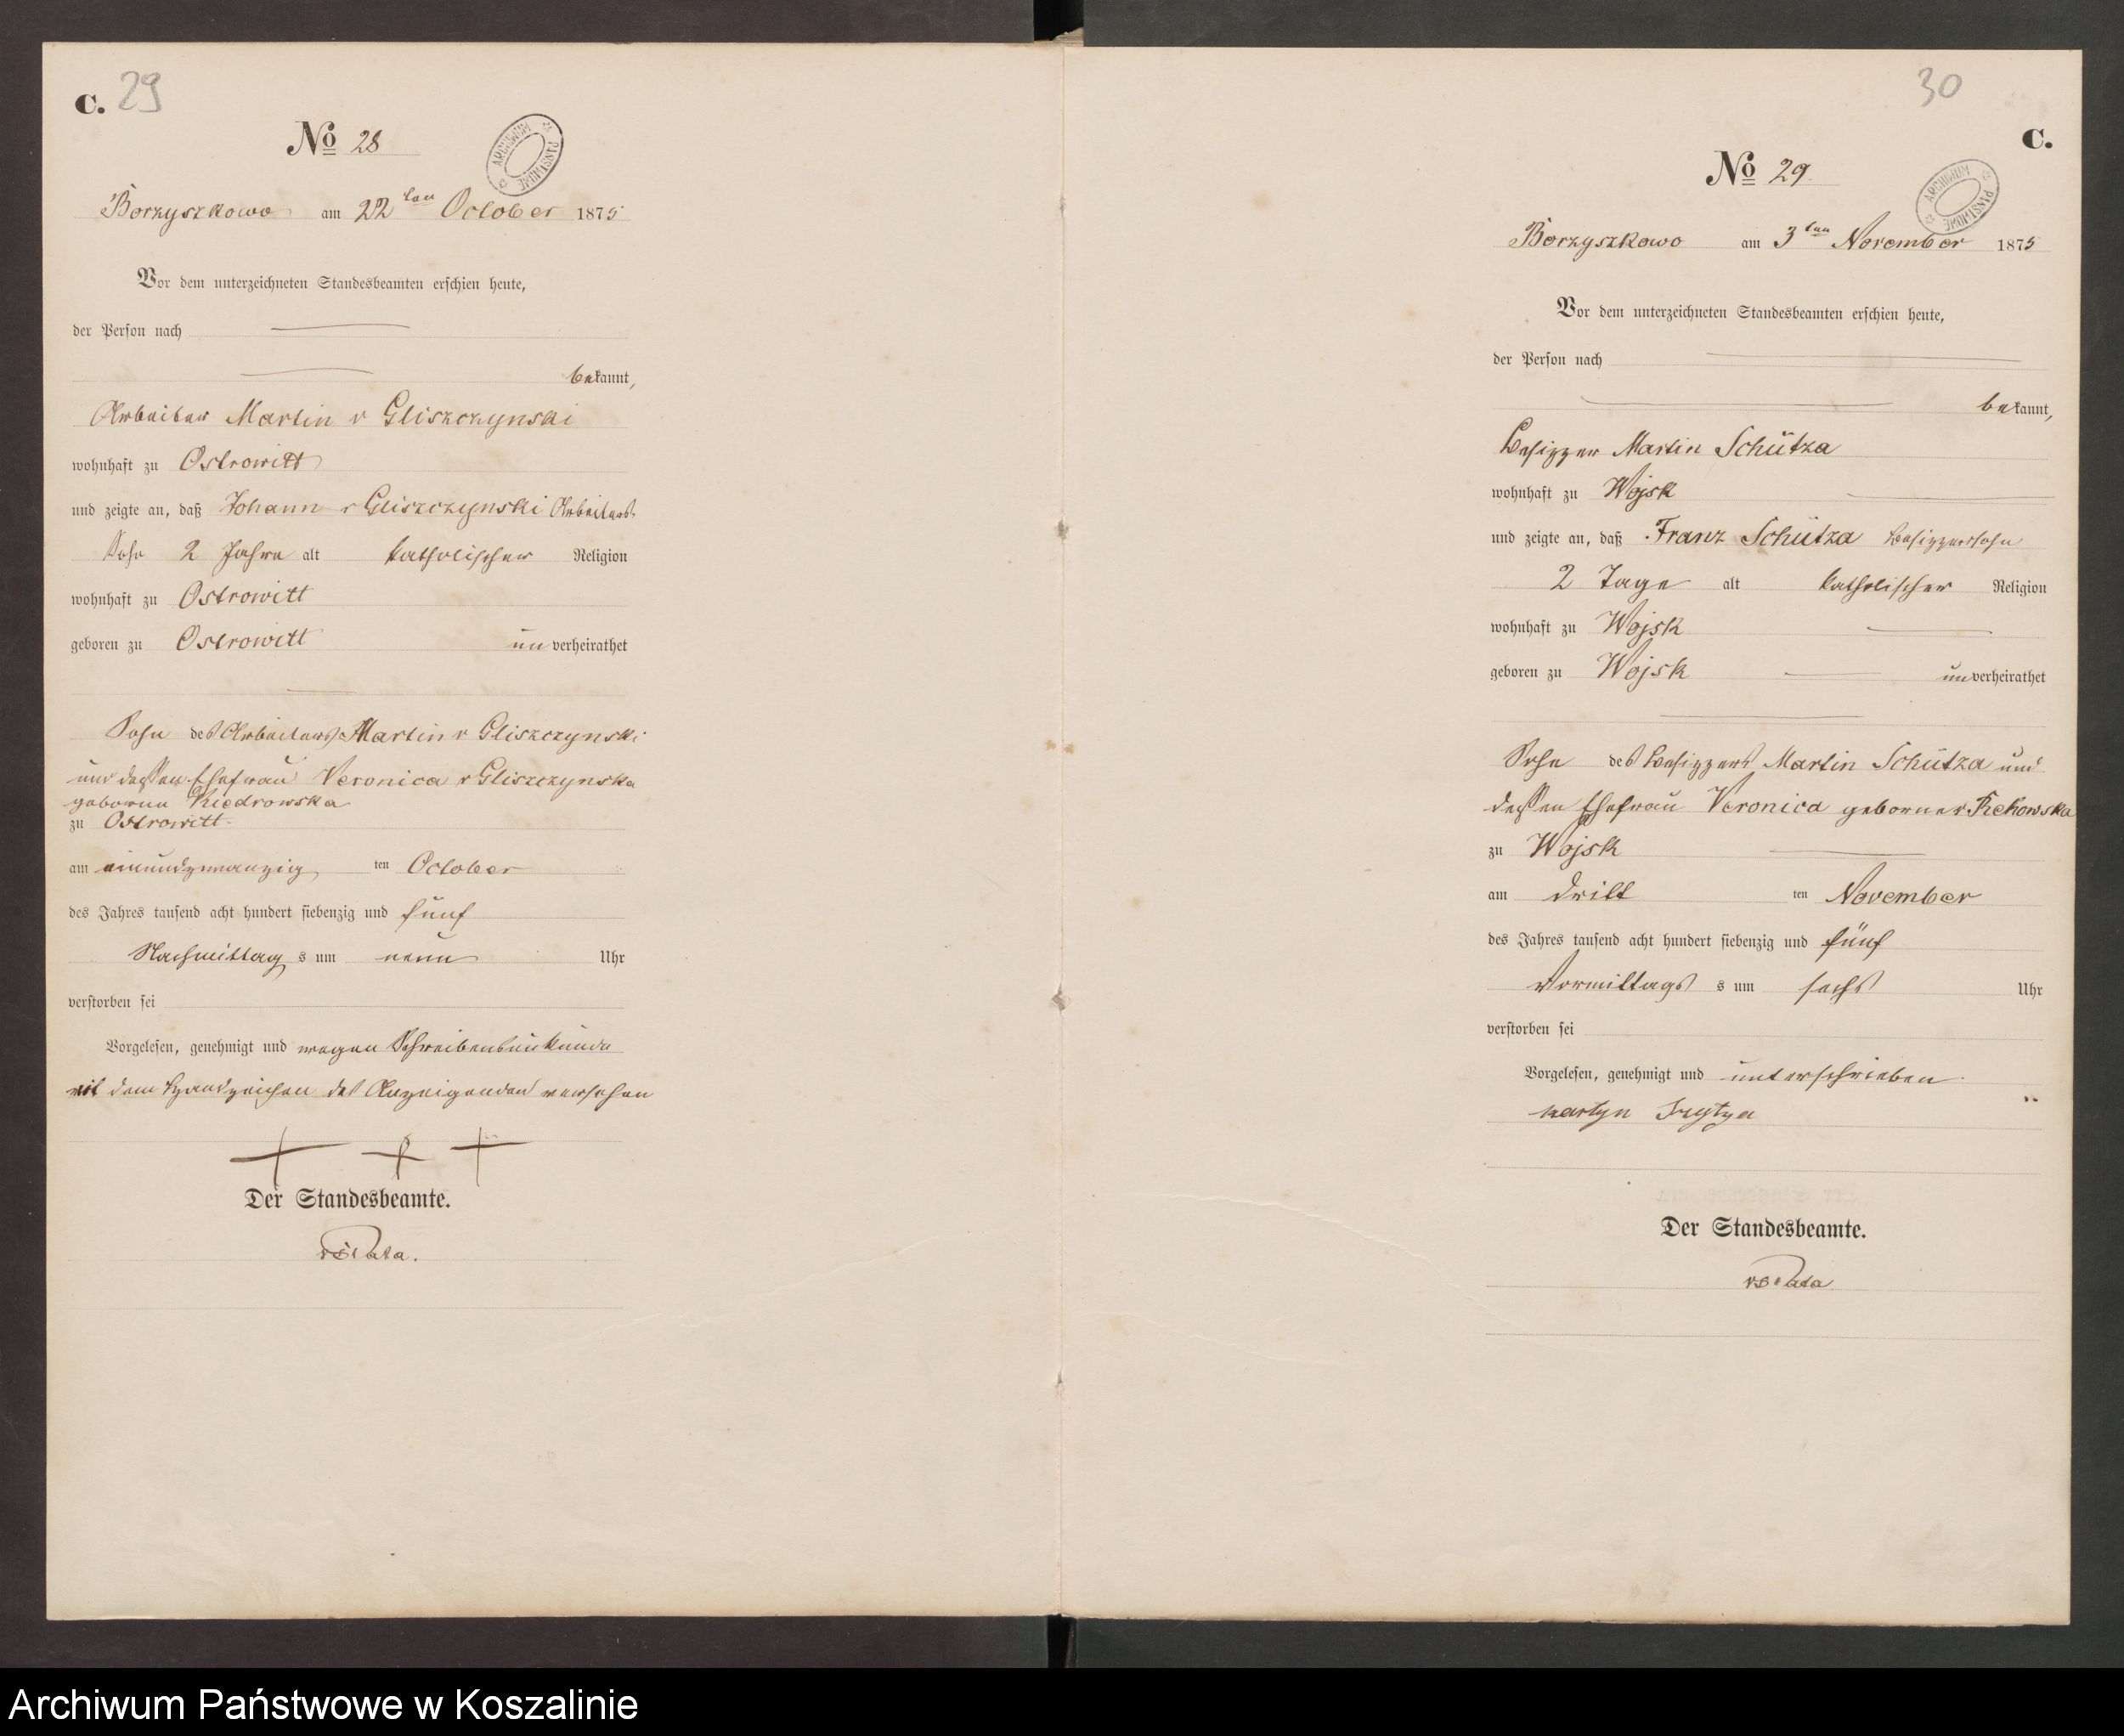 C. 29
No 28
ARCHIWUM PAŃSTWOWE
Borzyszkowo am 22ten October 1875
Vor dem unterzeichneten Standesbeamten erschien heute,
der Person nach
bekannt,
Arbeiter Martin v Gliszczynski
wohnhaft zu Ostrowitt
und zeigte an, daß Johann v Gliszczynski Arbeiters
Sohn 2 Jahre alt katholischer Religion
wohnhaft zu Ostrowitt
geboren zu Ostrowitt unverheirathet
Sohn des Arbeiters Martin v Gliszczynski
und dessen Ehefrau Veronica v Gliszczynska
geborne Kiedrowska
zu Ostrowitt
am einundzwanzig ten October
des Jahres tausend acht hundert siebenzig und fünf
Nachmittag s um neun Uhr
verstorben sei
Vorgelesen, genehmigt und wegen Schreibensunkunde
mit dem Handzeichen des Anzeigenden versehen
+ + +
Der Standesbeamte.
30
C.
No 29.
ARCHIWUM PAŃSTWOWE
Borzyszkowo am 3ten November 1875
Vor dem unterzeichneten Standesbeamten erschien heute,
der Person nach
bekannt,
Besitzer Martin Schütza
wohnhaft zu Wojsk
und zeigte an, daß Franz Schütza Besitzerssohn
2 Tage alt katholischer Religion
wohnhaft zu Wojsk
geboren zu Wojsk unverheirathet
Sohn des Besitzers Martin Schütza und
dessen Ehefrau Veronica geborner Rekowska
zu Wojsk
am dritt ten November
des Jahres tausend acht hundert siebenzig und fünf
Vormittags s um sechs Uhr
verstorben sei
Vorgelesen, genehmigt und unterschrieben
Der Standesbeamte.
Archiwum Państwowe w Koszalinie